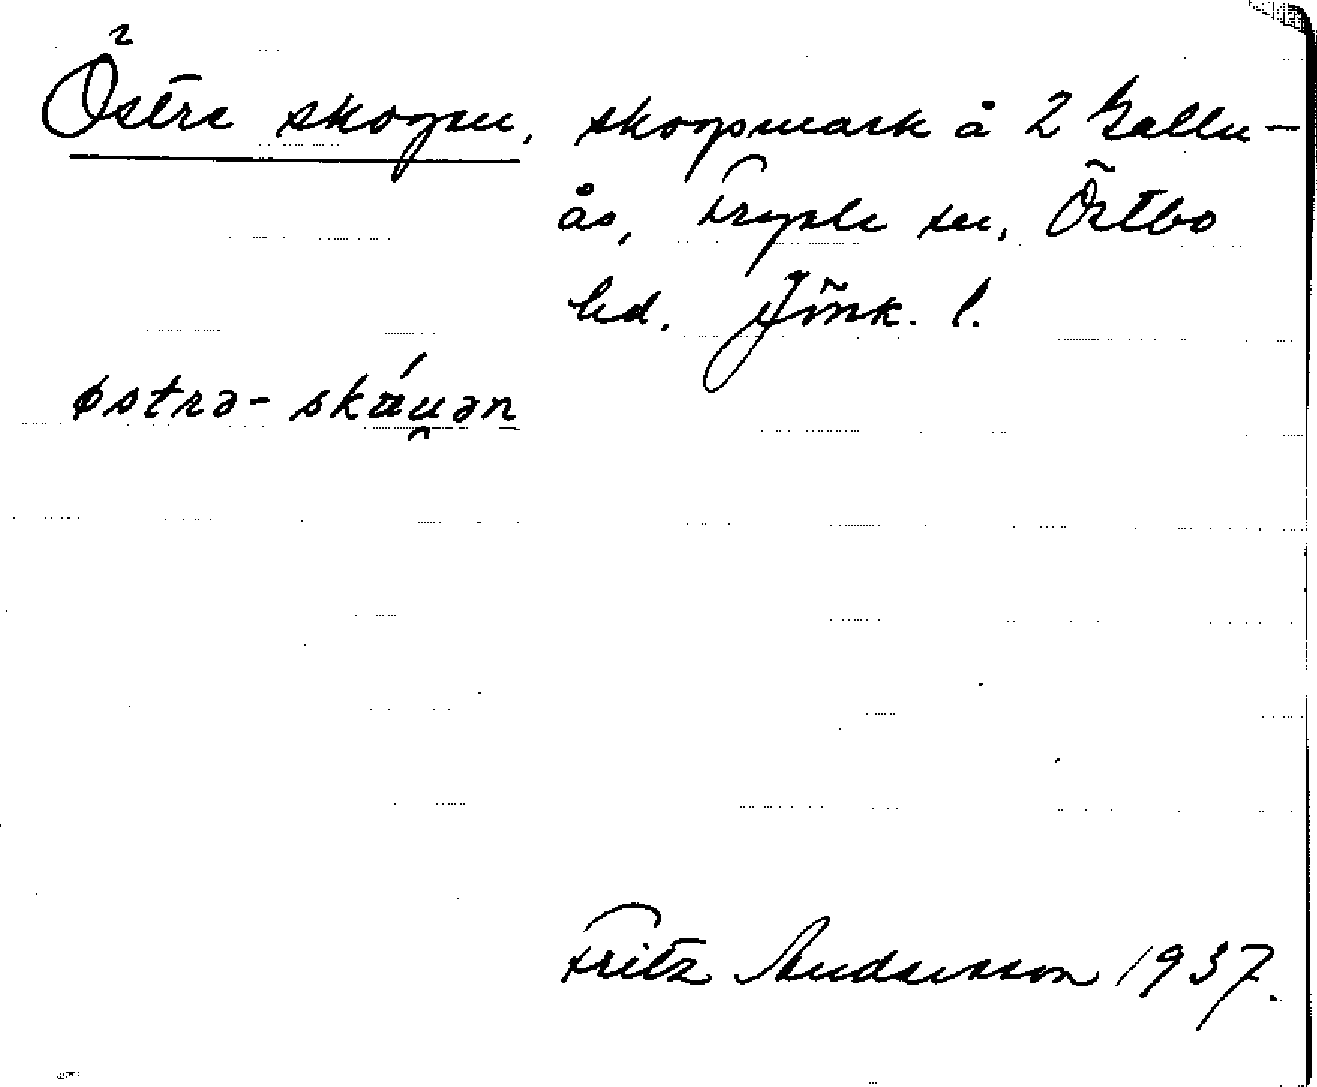 Östre skogen, skogsmark å 2 Kallu-
ås, Tryple sn, Östbo
hd. Jönk. l.
østrə- skáu̯ən
Fritz Andersson 1937.